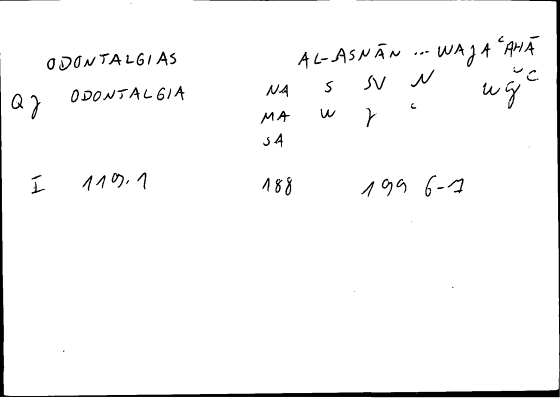 ODONTALGIAS AL-ASNĀN ... WAJA ʿAHĀ
QJ ODONTALGIA NA S SN N wǧʿ
MA W J ʿ
SA
I 119.1 188 199 6-7